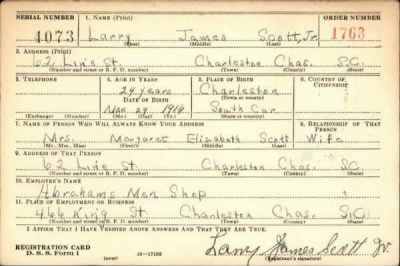 SERIAL NUMBER 1. NAME (Print) ORDER NUMBER
4073 Larry James Scott, Jr. 1763
(First) (Middle) (Last)
2. ADDRESS (Print)
62 Line St. Charleston Chas. S.C.
(Number and street or R. F. D. number) (Town) (County) (State)
3. TELEPHONE 4. AGE IN YEARS 5. PLACE OF BIRTH 6. COUNTRY OF CITIZENSHIP
24 years Charleston
DATE OF BIRTH (Town or county)
Mar 29 1916 South Car.
(Exchange) (Number) (Mo.) (Day) (Yr.) (State or country)
7. NAME OF PERSON WHO WILL ALWAYS KNOW YOUR ADDRESS 8. RELATIONSHIP OF THAT PERSON
Mrs. Margaret Elizabeth Scott Wife
(Mr., Mrs., Miss) (First) (Middle) (Last)
9. ADDRESS OF THAT PERSON
62 Line St. Charleston Chas. S.C.
(Number and street or R. F. D. number) (Town) (County) (State)
10. EMPLOYER'S NAME
Abrahams Men Shop
11. PLACE OF EMPLOYMENT OR BUSINESS
466 King St Charleston Chas. S.C.
(Number and street or R. F. D. number) (Town) (County) (State)
I AFFIRM THAT I HAVE VERIFIED ABOVE ANSWERS AND THAT THEY ARE TRUE.
REGISTRATION CARD
D. S. S. Form 1 (over) 16—17105 Larry James Scott Jr.
(Registrant's signature)